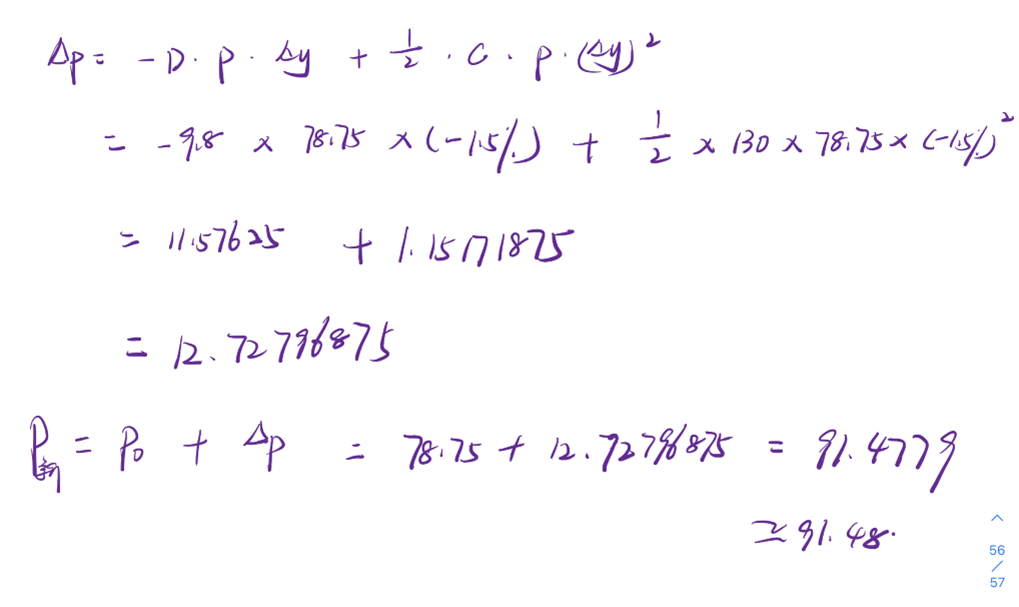 Δp = -D · p · Δy + 1/2 · C · p · (Δy)²
= -9.8 × 78.75 × (-1.5%) + 1/2 × 130 × 78.75 × (-1.5%)²
= 11.57625 + 1.15171875
= 12.72796875
P新 = P₀ + Δp = 78.75 + 12.72796875 = 91.4779
≃ 91.48.
56
/
57